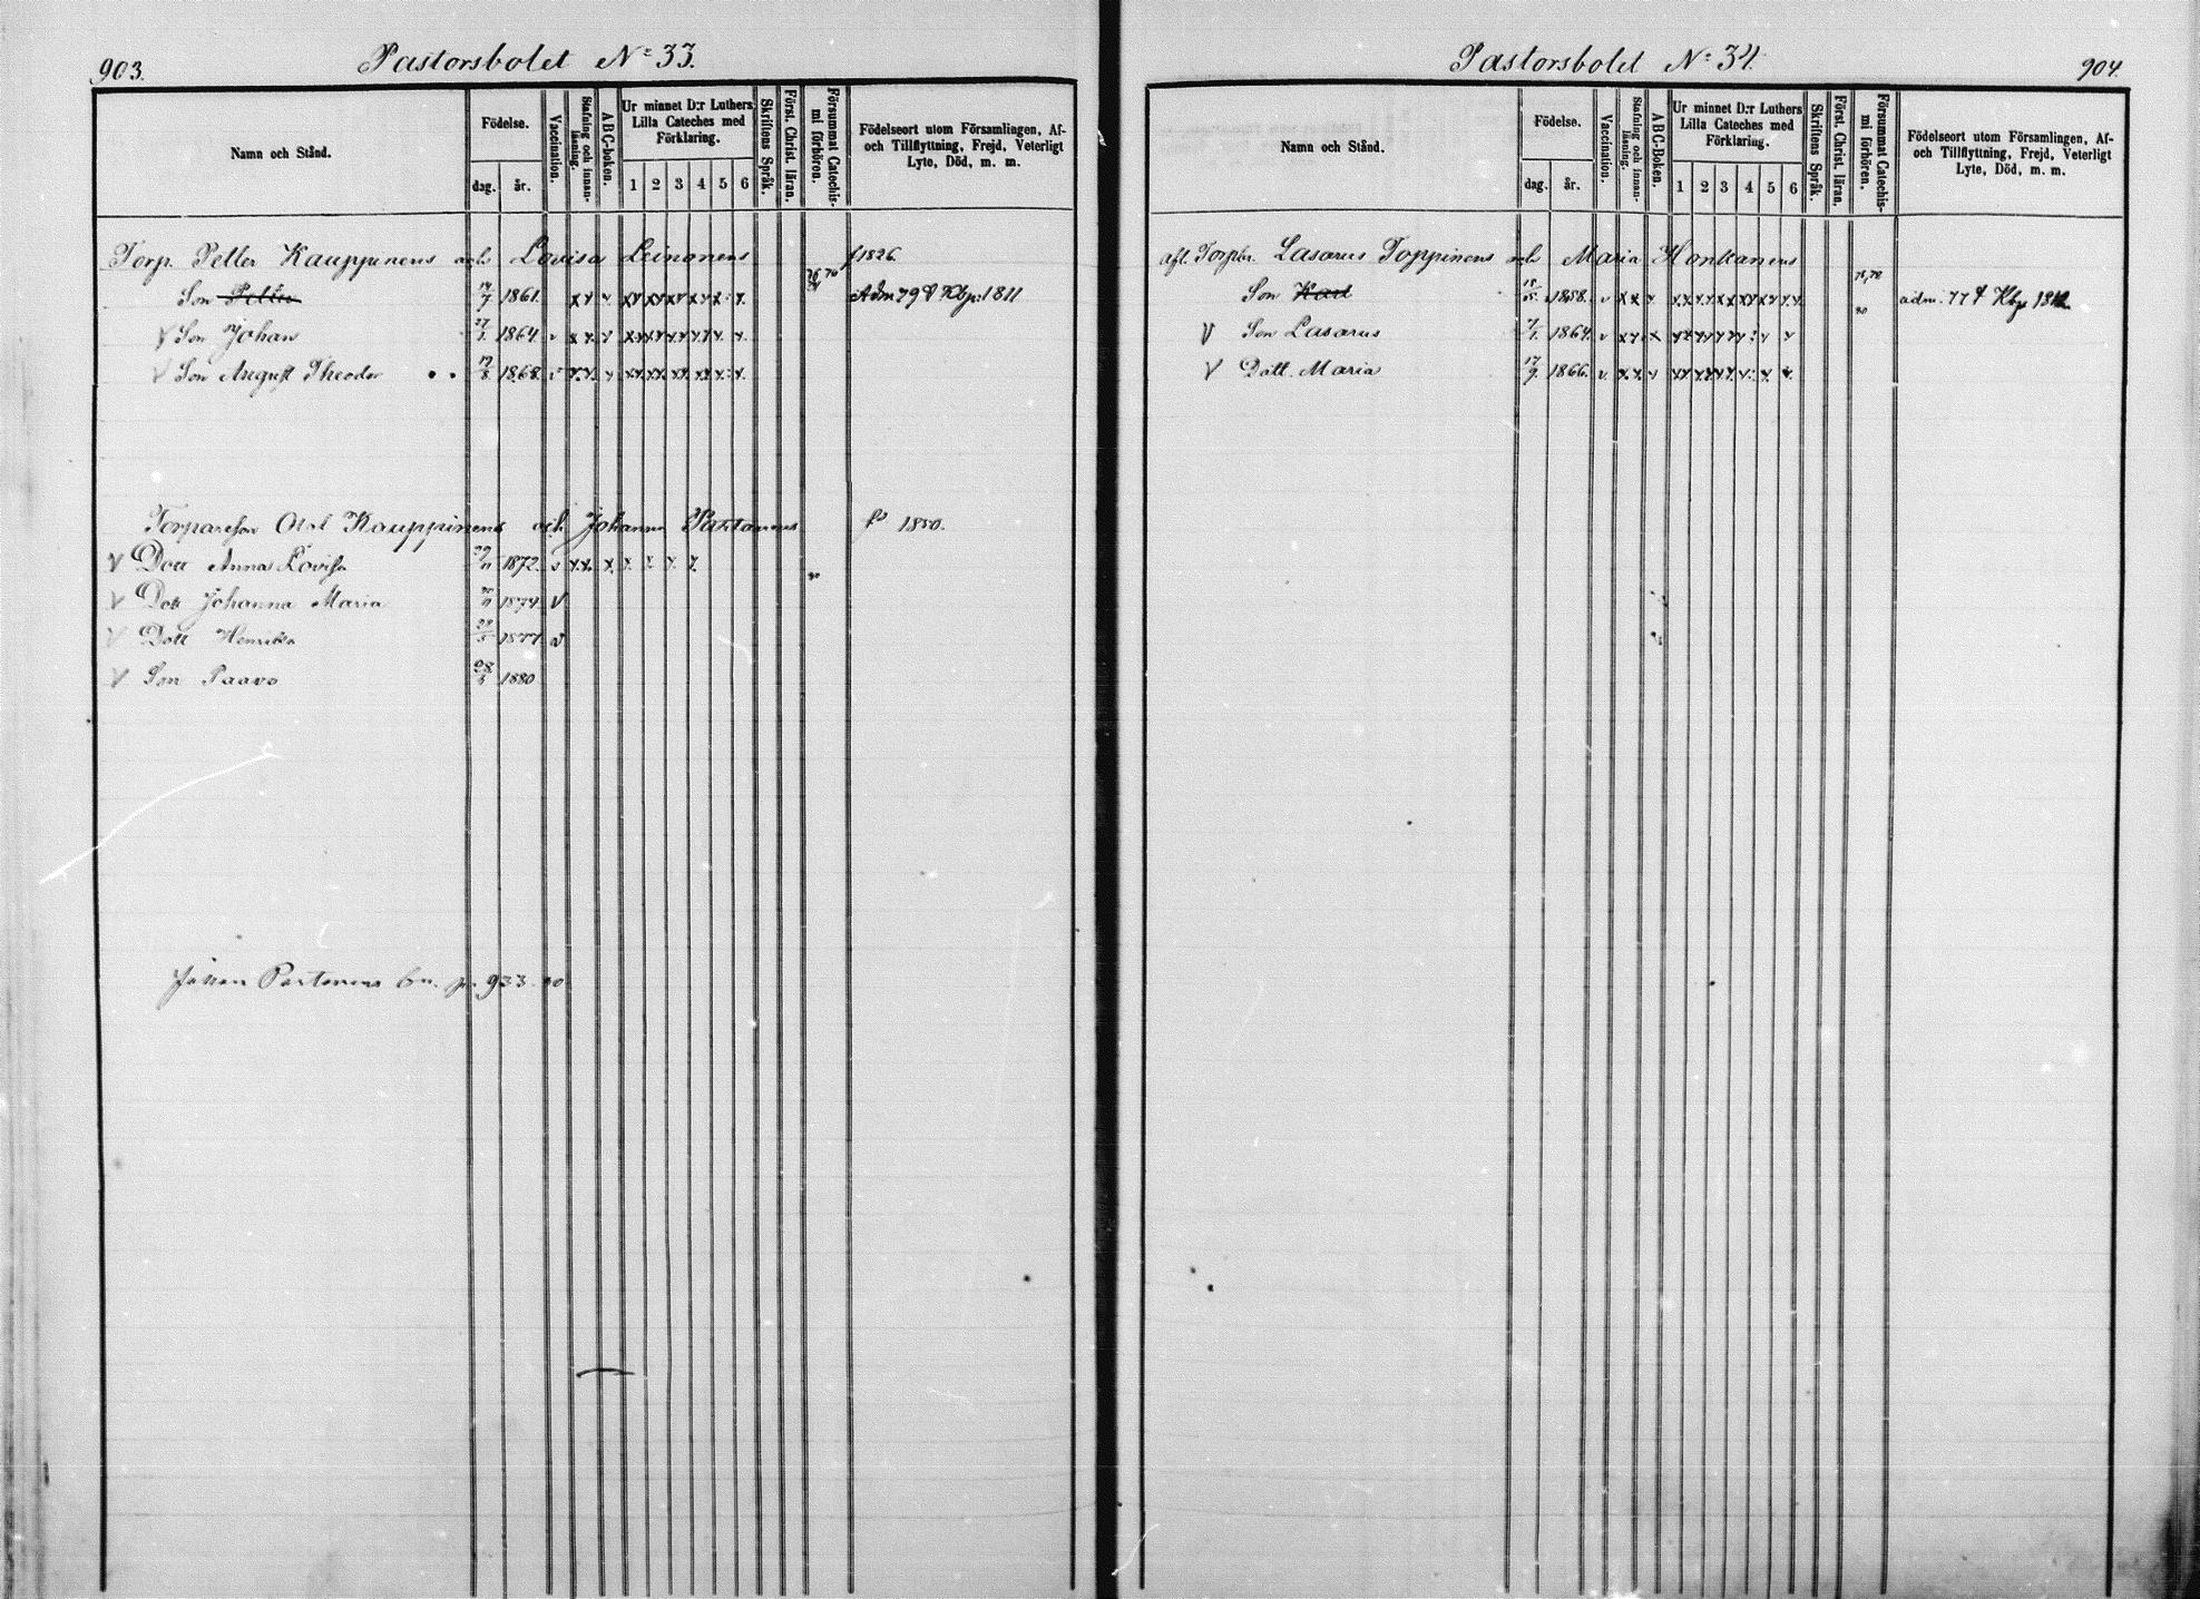 903.
Pastorsbolet No 33.
Namn och Stånd.
Födelse.
dag.
år.
Vaccination.
Stafning och innan-läsning.
ABC-boken.
Ur minnet D:r Luthers
Lilla Cateches med
Förklaring.
1 2 3 4 5 6
Skriftens Språk.
Först. Christ. läran.
Försummat Catechis-
mi förhören.
Födelseort utom Församlingen, Af-
och Tillflyttning, Frejd, Veterligt
Lyte, Död, m. m.
Torp. Petter Kauppinens och Lovisa Leinonens f 1826
Son Petter 1861. Adm 79 Kbp: 1811
V Son Johan 1864
V Son August Theodor 19/8 1868
Kauppinens och Johanna Partanens 1850.
V Dott Anna Lovisa 1872
V Dott Johanna Maria 1874 V
V Dott Henrika 1877
V Son Paavo 1880
Johan Partanens p. 933
Pastorsbolet No 34.
904.
Namn och Stånd.
Födelse.
dag.
år.
Vaccination.
Stafning och innan-läsning.
ABC-Boken.
Ur minnet D:r Luthers
Lilla Cateches med
Förklaring.
1 2 3 4 5 6
Skriftens Språk.
Först. Christ. läran.
Försummat Catechis-
mi förhören.
Födelseort utom Församlingen, Af-
och Tillflyttning, Frejd, Veterligt
Lyte, Död, m. m.
afl. Torpr. Lasarus Toppinens och Maria Honkanens
Son Karl 1858. adm. 77 Kbp
V Son Lasarus 1864
V Dott. Maria 17/9 1866.